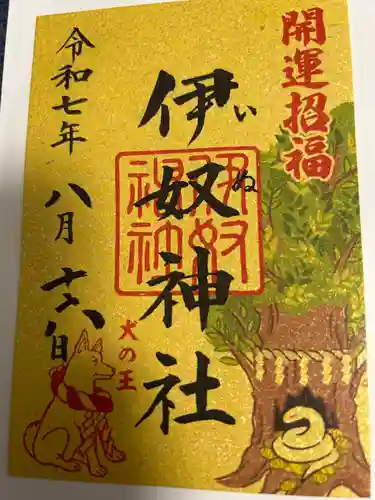 開運招福
伊奴神社
いぬ
伊奴
神社
犬の王
令和七年
八月
十六日